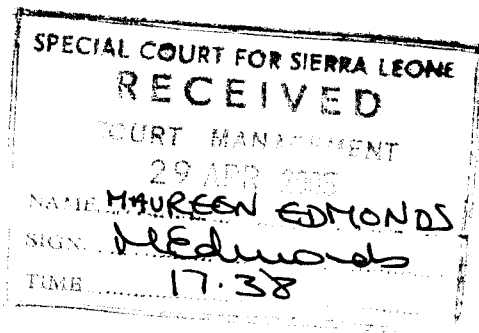 SPECIAL COURT FOR SIERRA LEONE
RECEIVED
COURT MANAGEMENT
29 APR
NAME MAUREEN EDMONDS
SIGN. MEdmonds
TIME 17.38